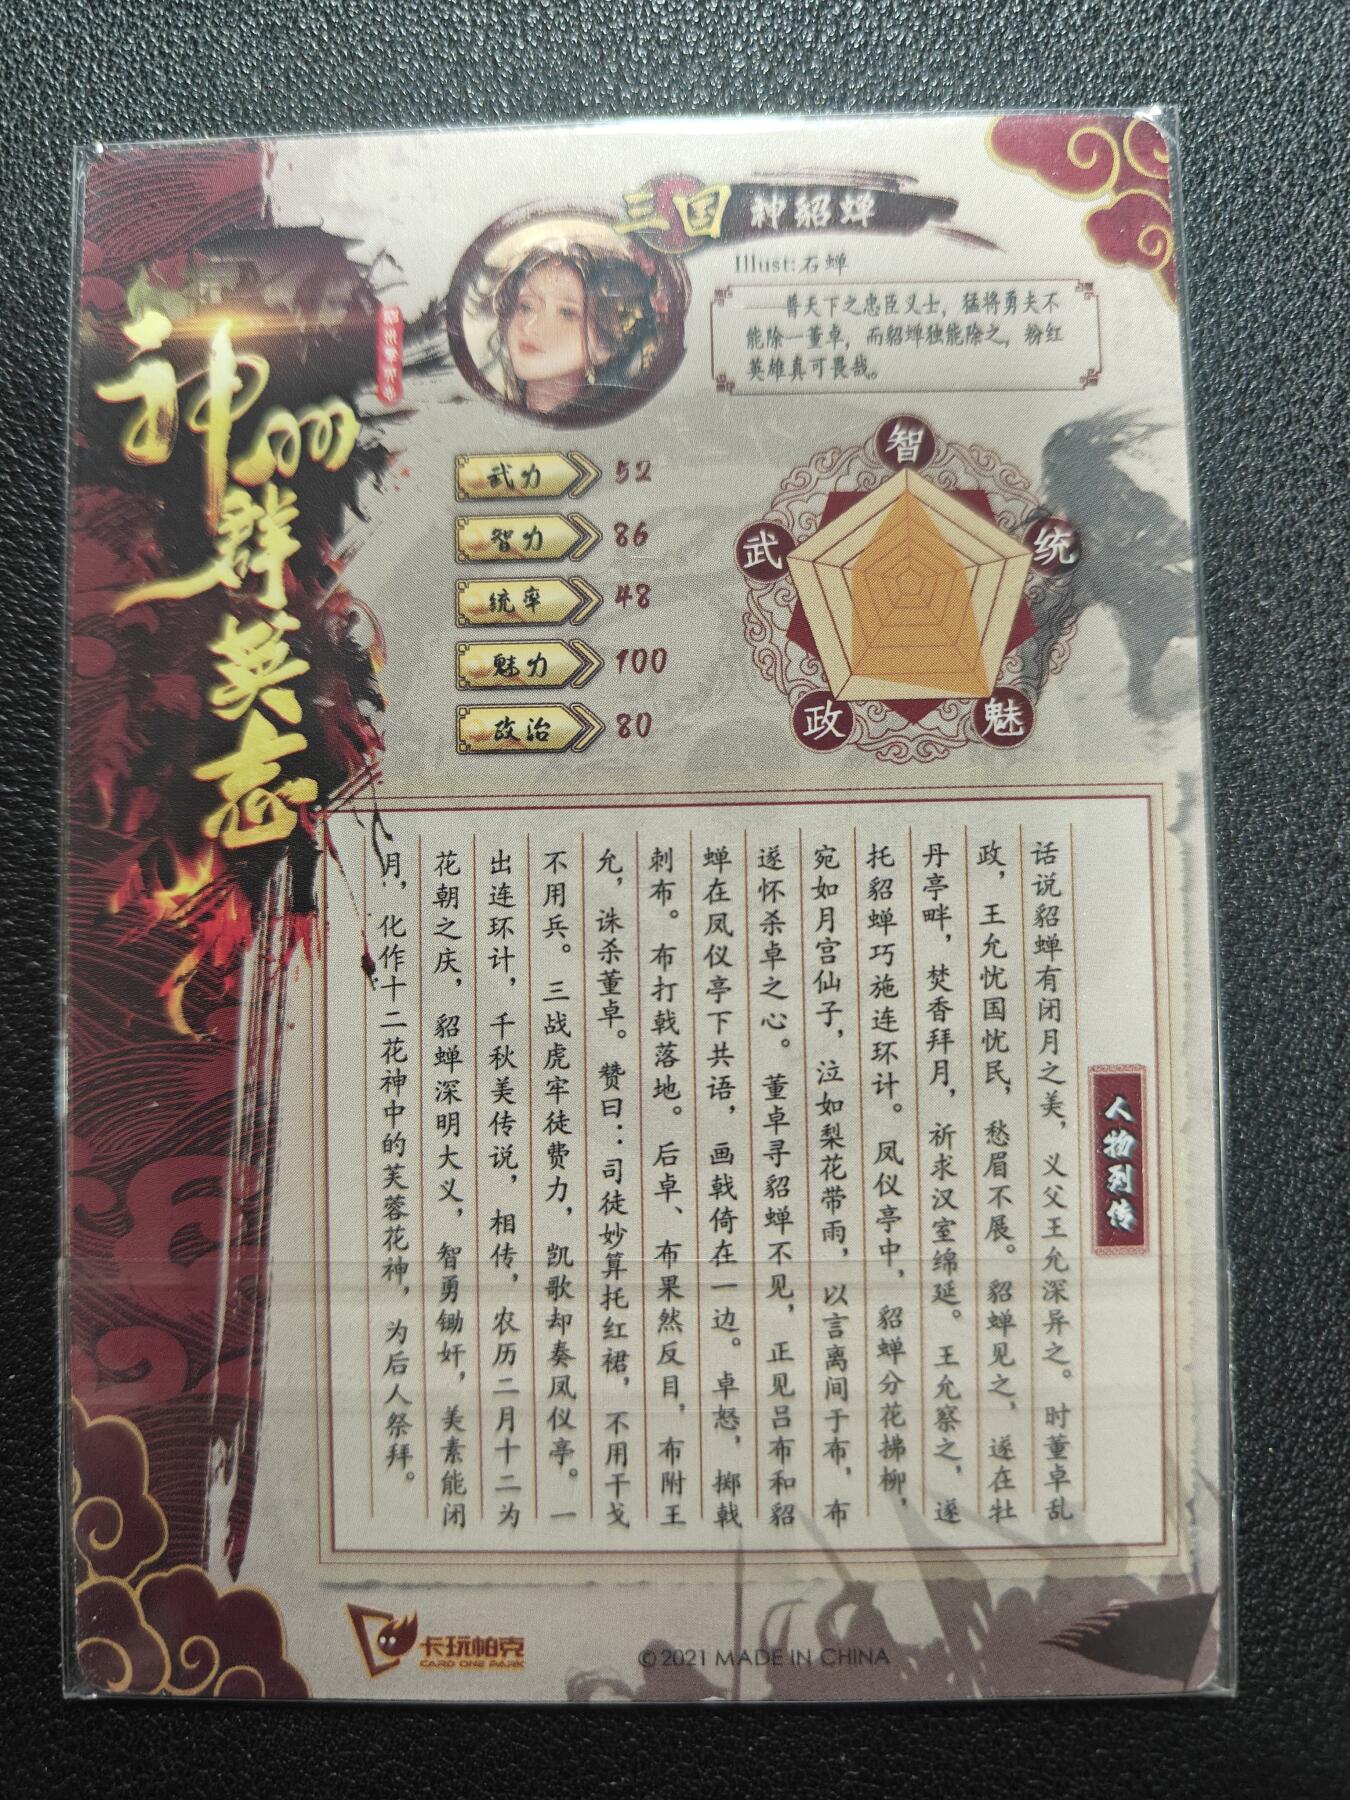 三国 神貂蝉
Illust:石蝉
——普天下之忠臣义士，猛将勇夫不
能除一董卓，而貂蝉独能除之，粉红
英雄真可畏哉。
神州群英志
武力 52
智力 86
统率 48
魅力 100
政治 80
智
武
统
政
魅
人物列传
话说貂蝉有闭月之美，义父王允深异之。时董卓乱
政，王允忧国忧民，愁眉不展。貂蝉见之，遂在牡
丹亭畔，焚香拜月，祈求汉室绵延。王允察之，遂
托貂蝉巧施连环计。凤仪亭中，貂蝉分花拂柳，
宛如月宫仙子，泣如梨花带雨，以言离间于布，布
遂怀杀卓之心。董卓寻貂蝉不见，正见吕布和貂
蝉在凤仪亭下共语，画戟倚在一边。卓怒，掷戟
刺布。布打戟落地。后卓、布果然反目，布附王
允，诛杀董卓。赞曰：司徒妙算托红裙，不用干戈
不用兵。三战虎牢徒费力，凯歌却奏凤仪亭。一
出连环计，千秋美传说，相传，农历二月十二为
花朝之庆，貂蝉深明大义，智勇锄奸，美素能闭
月，化作十二花神中的芙蓉花神，为后人祭拜。
卡玩帕克
CARD ONE PARK
©2021 MADE IN CHINA